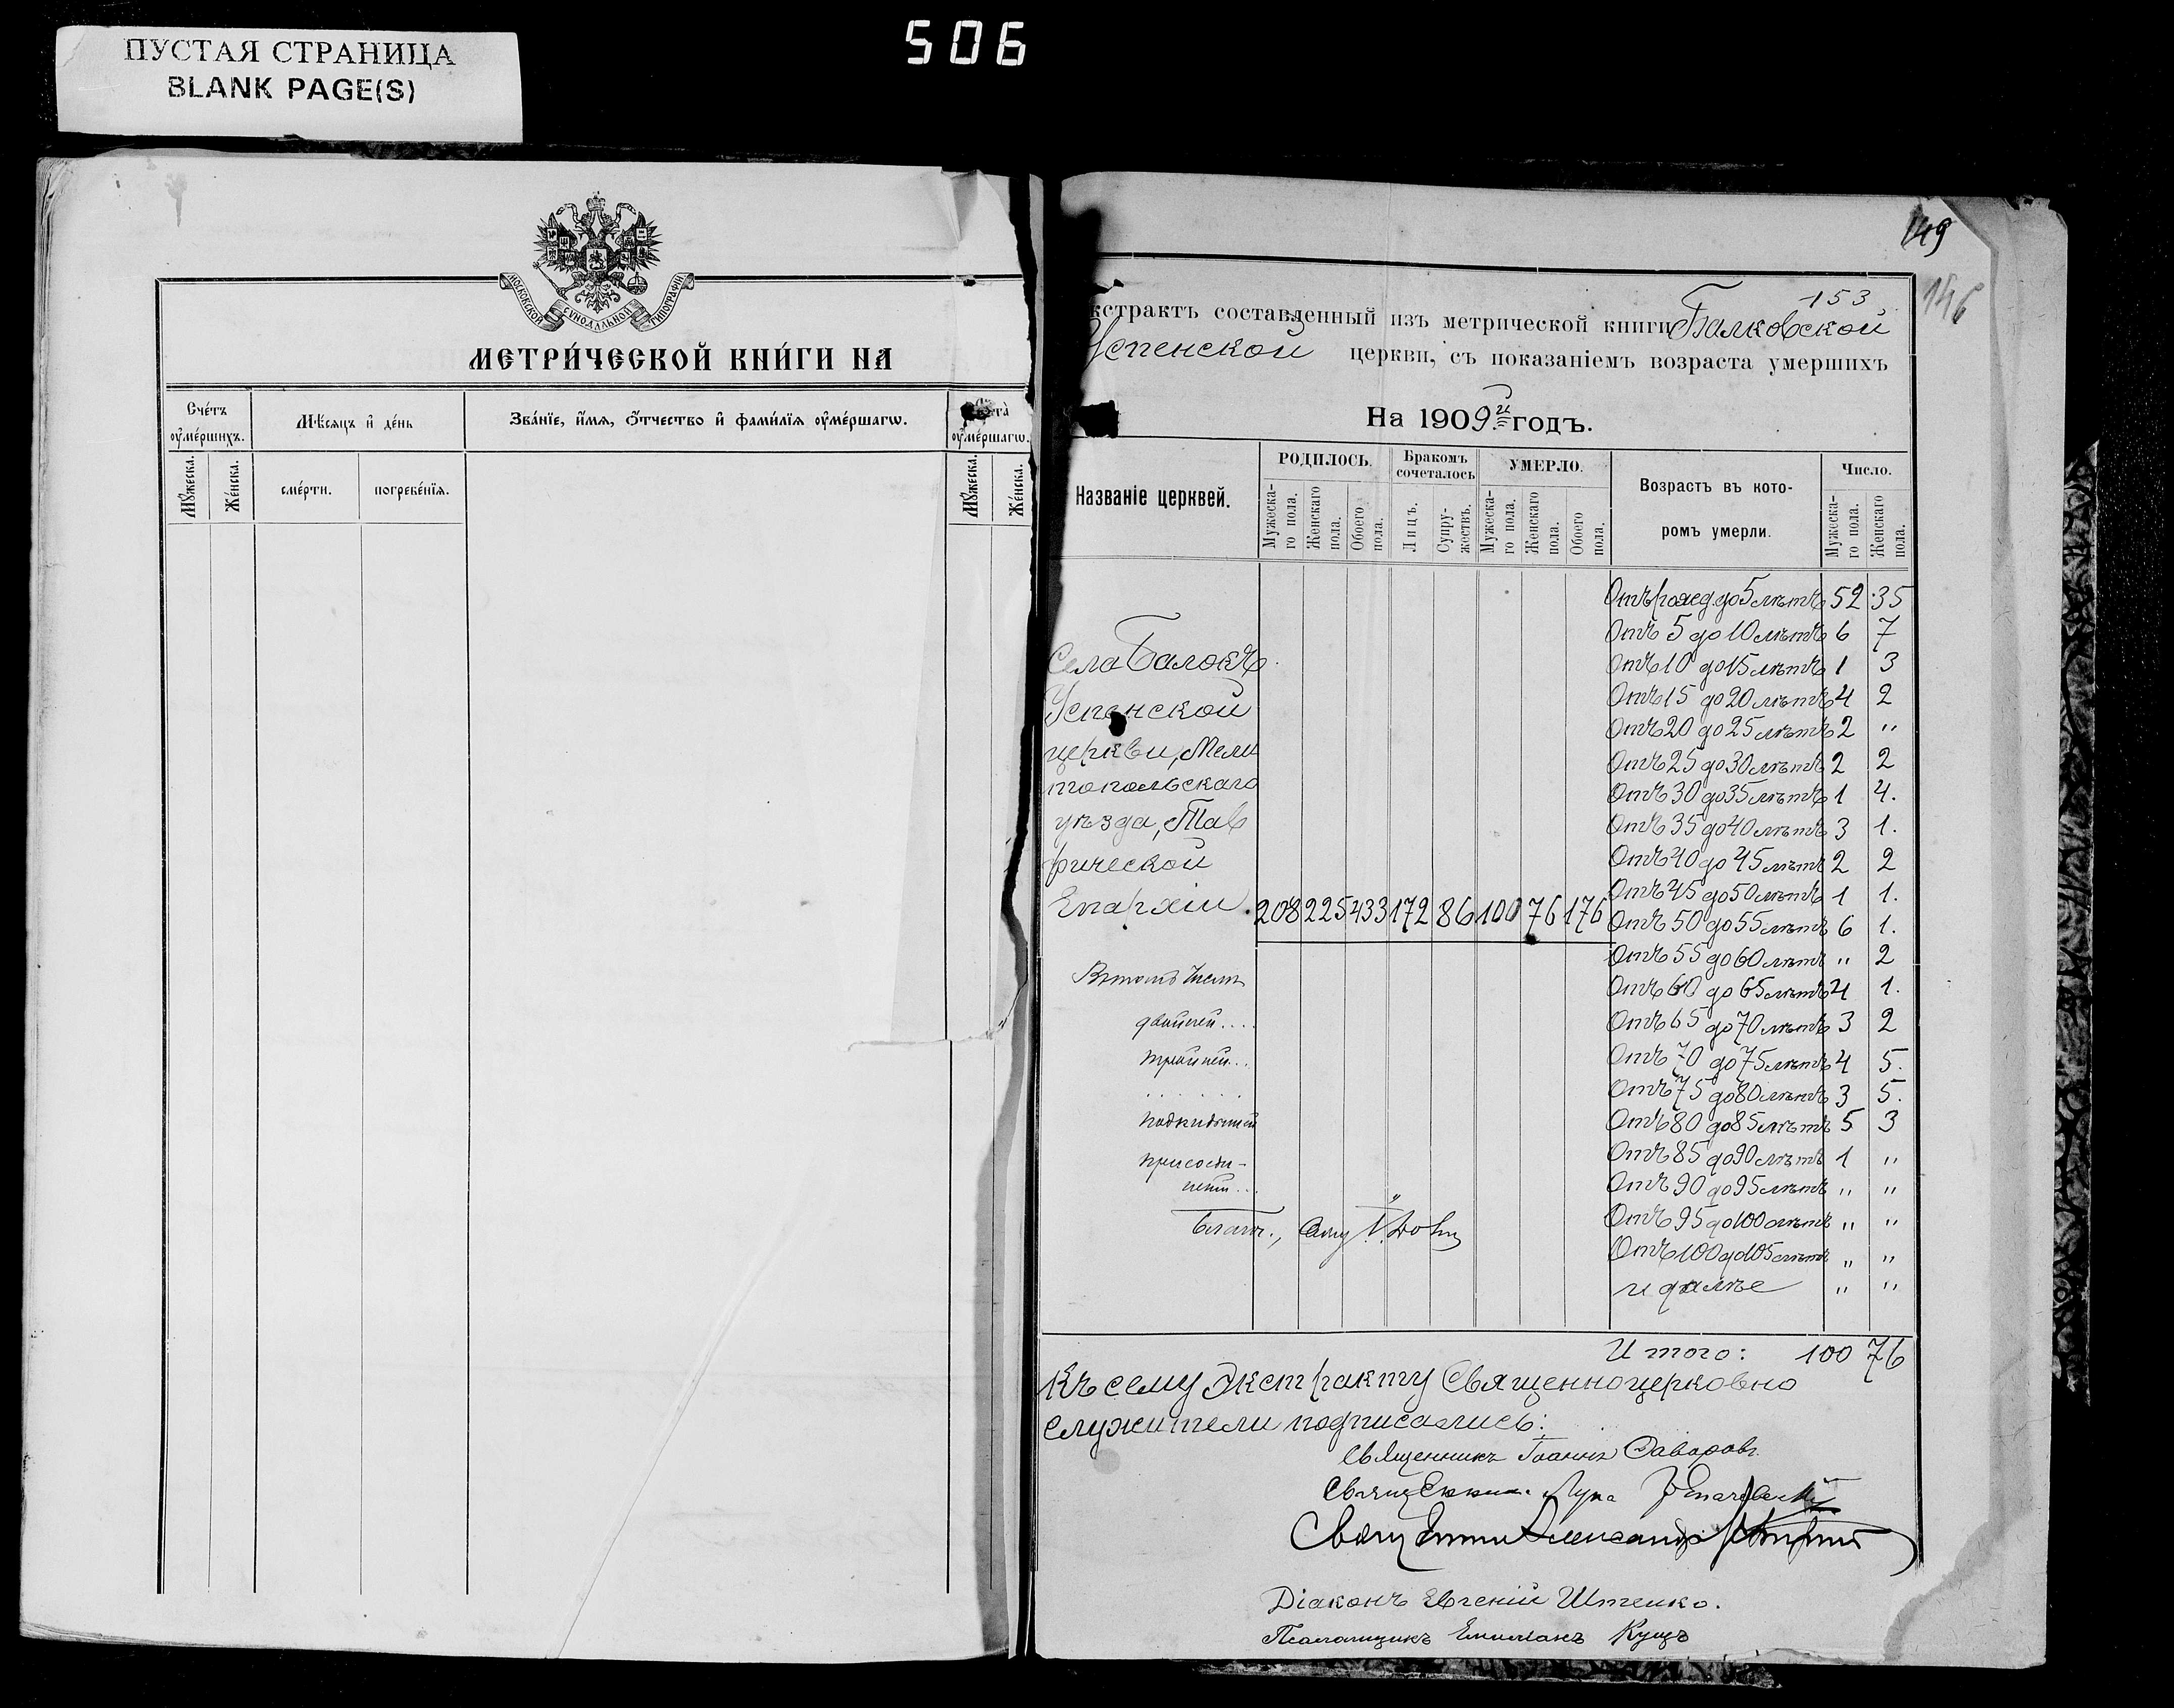 ПУСТАЯ СТРАНИЦА
BLANK PAGE(S)
506
МОСКОВСКОЙ СУНОДАЛЬНОЙ ТИПОГРАФІИ
МЕТРИ́ЧЕСКОЙ КНИ́ГИ НА
Сче́тъ ѹ҆ме́ршихъ.
Мѣ́сяцъ и҆ де́нь
Зва́нїе, и҆́мя, ѻ҆́тчество и҆ фами́лїя ѹ҆ме́ршагѡ.
ѹ҆ме́ршагѡ.
Мꙋ́жеска.
Же́нска.
сме́рти.
погребе́нїя.
Мꙋ́жеска.
Же́нска.
149
146
153
кстрактъ составленный изъ метрической книги Балковской
Успенской церкви, съ показаніемъ возраста умершихъ
На 1909й годъ.
Названіе церквей.
РОДИЛОСЬ.
Бракомъ сочеталось
УМЕРЛО.
Возрастъ въ которомъ умерли.
Число.
Мужеска-го пола.
Женскаго пола.
Обоего пола.
Лицъ.
Супру-жествъ.
Мужеска-го пола.
Женскаго пола.
Обоего пола.
Мужеска-го пола.
Женскаго пола.
Села Балокъ
Успенской
церкви, Мели
топольскаго
уѣзда, Тав
рической
Епархіи. 208 225 433 172 86 100 76 176
Въ томъ числѣ
двойней....
тройней...
подкидышей
присоеди-
нен...
Отъ рожд. до 5 лѣтъ 52 35
Отъ 5 до 10 лѣтъ 6 7
Отъ 10 до 15 лѣтъ 1 3
Отъ 15 до 20 лѣтъ 4 2
Отъ 20 до 25 лѣтъ 2 "
Отъ 25 до 30 лѣтъ 2 2
Отъ 30 до 35 лѣтъ 1 4.
Отъ 35 до 40 лѣтъ 3 1.
Отъ 40 до 45 лѣтъ 2 2
Отъ 45 до 50 лѣтъ 1 1.
Отъ 50 до 55 лѣтъ 6 1.
Отъ 55 до 60 лѣтъ " 2
Отъ 60 до 65 лѣтъ 4 1.
Отъ 65 до 70 лѣтъ 3 2
Отъ 70 до 75 лѣтъ 4 5.
Отъ 75 до 80 лѣтъ 3 5.
Отъ 80 до 85 лѣтъ 5 3
Отъ 85 до 90 лѣтъ 1 "
Отъ 90 до 95 лѣтъ " "
Отъ 95 до 100 лѣтъ " "
Отъ 100 до 105 лѣтъ " "
и далѣе " "
Итого: 100 76
Къ сему экстракту Священноцерковно
служители подписались:
Священникъ Іоаннъ
Священникъ Лука
Священникъ Александръ
Діаконъ Евгеній
Псаломщикъ Куцъ